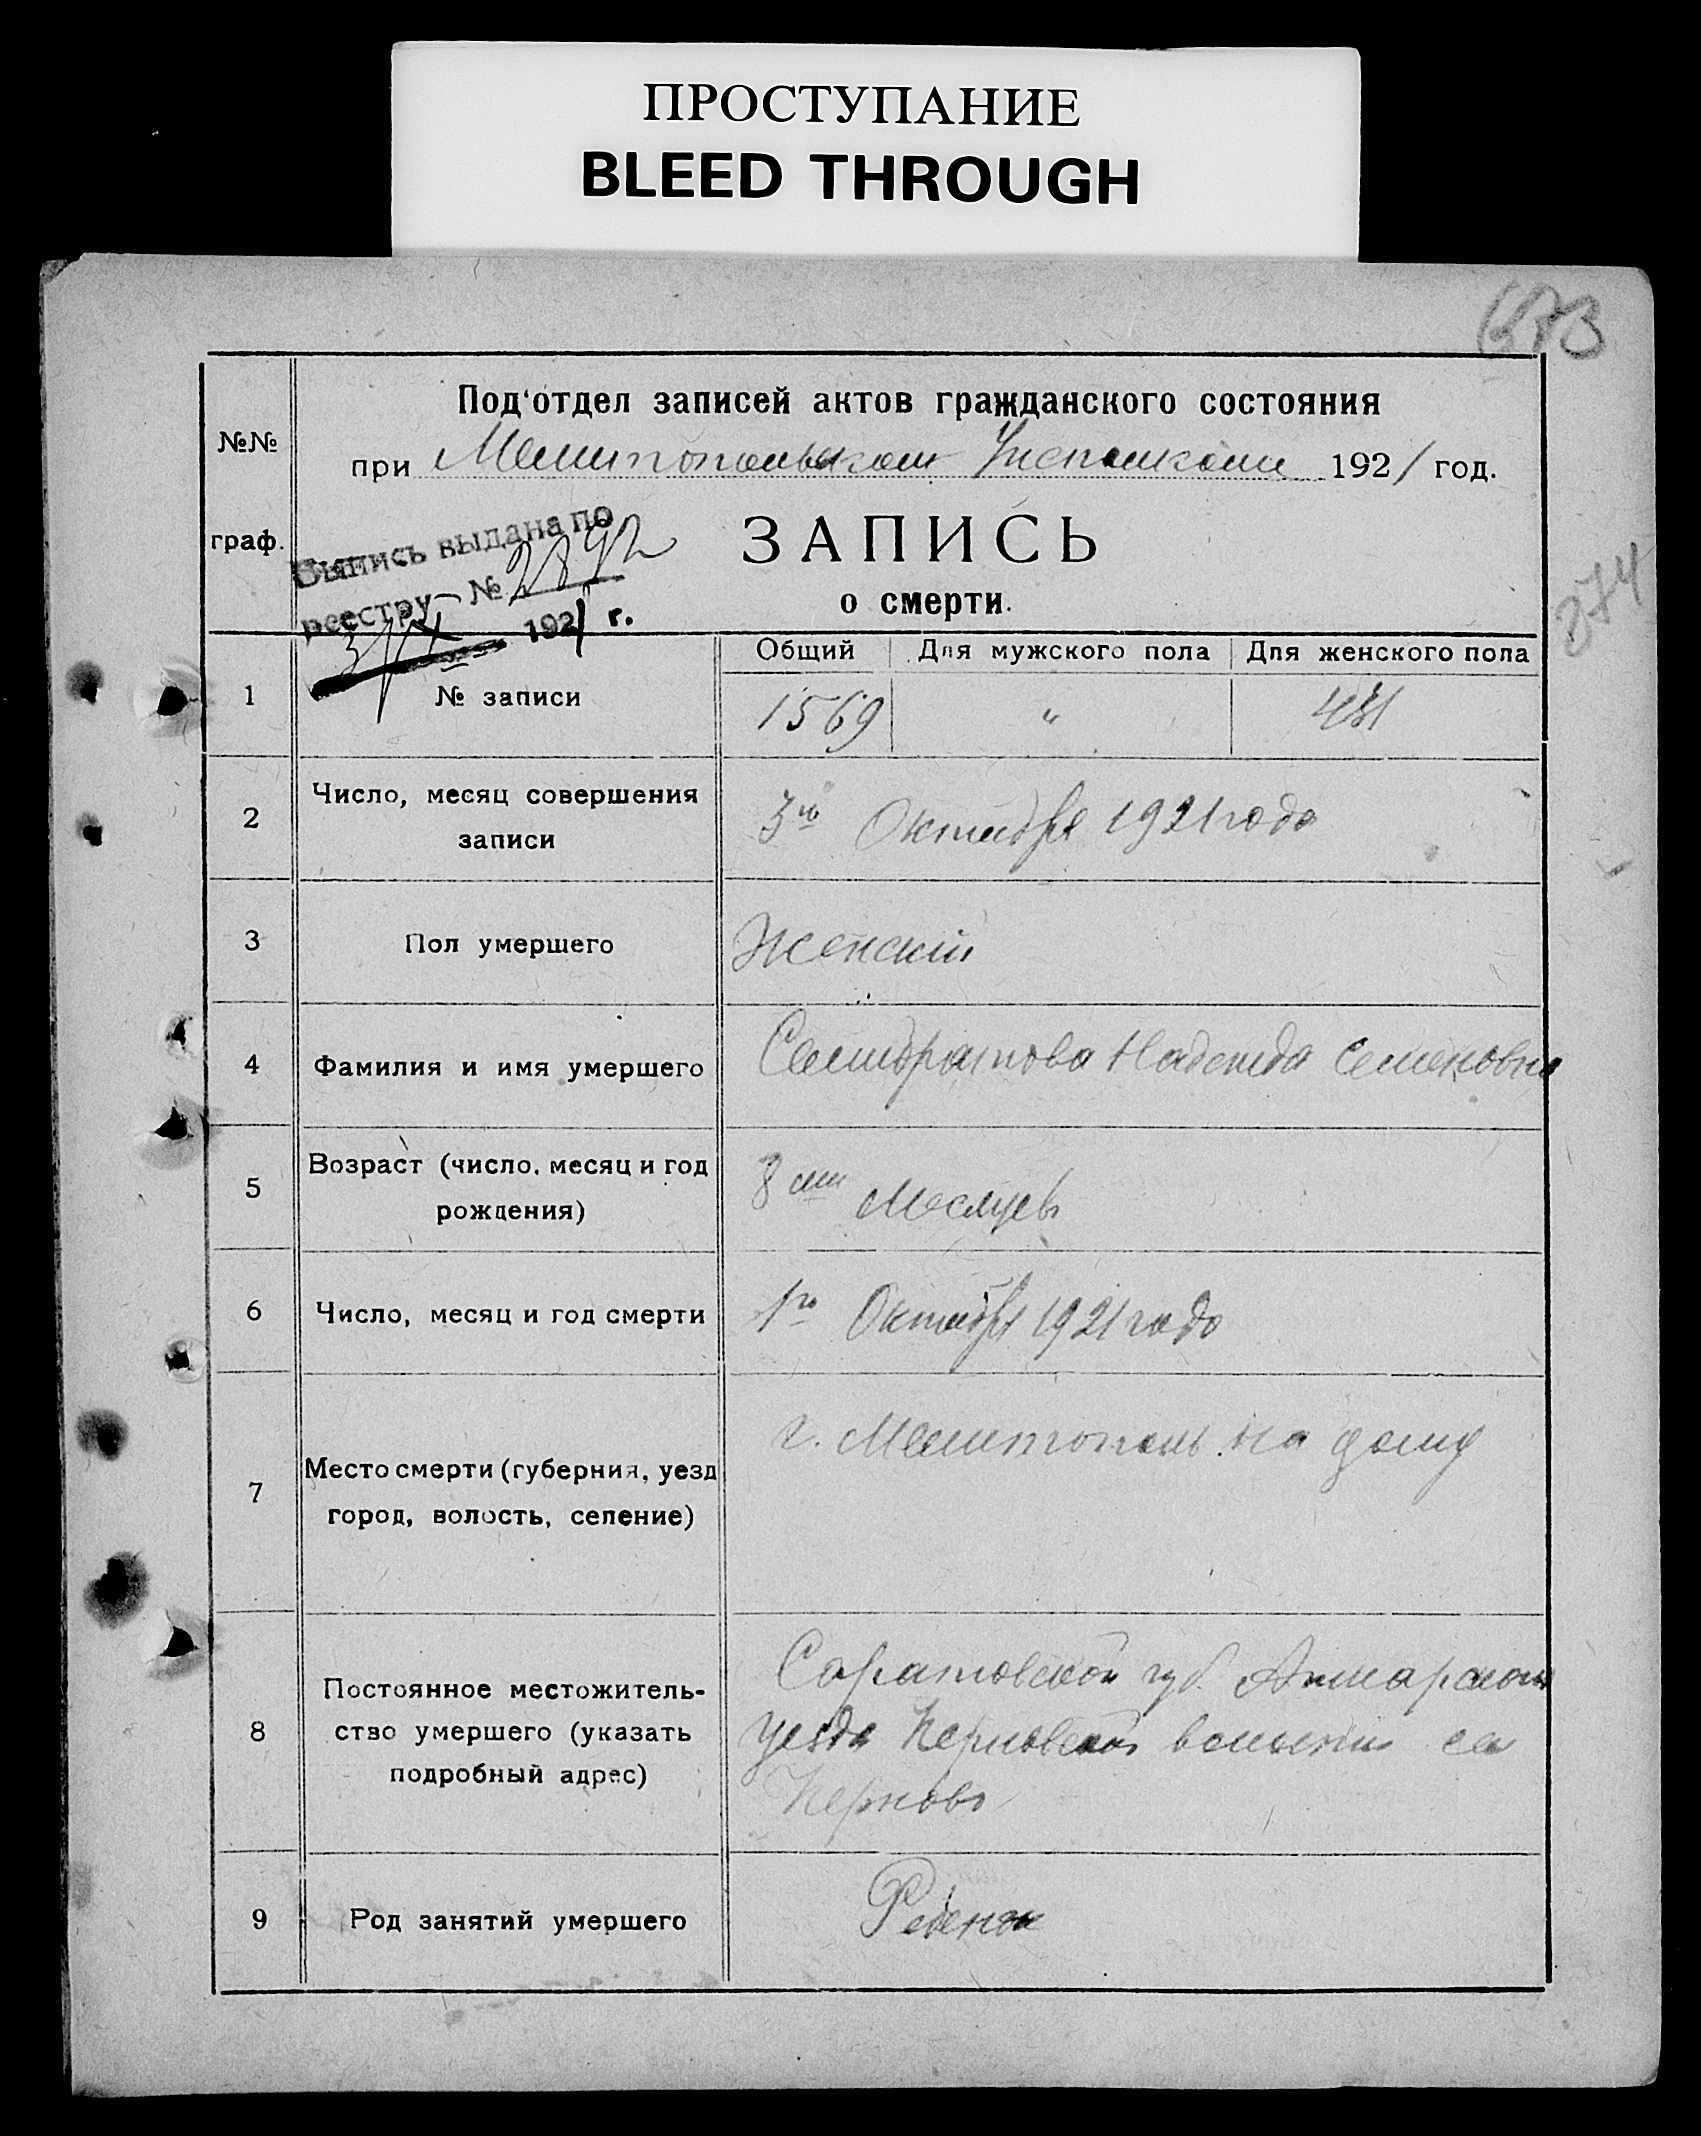 ПРОСТУПАНИЕ
BLEED THROUGH
Под'отдел записей актов гражданского состояния
№№
при Мелитопольском Уисполкоме 1921 год.
ЗАПИСЬ
граф.
Выпись выдана по
реестру № 2892
1921 г.
о смерти.
Общий Для мужского пола Для женского пола
1 № записи
1569 "
2 Число, месяц совершения
записи
3го Октября 1921 года
3 Пол умершего
Женский
4 Фамилия и имя умершего
Надежда Семеновна
5 Возраст (число, месяц и год
рождения)
8 ми Месяцев
6 Число, месяц и год смерти
1го Октября 1921 года
7 Место смерти (губерния, уезд
город, волость, селение)
г. Мелитополь на дому
8 Постоянное местожитель-
ство умершего (указать
подробный адрес)
Саратовской губ. Аткарского
уезда волости
9 Род занятий умершего
Ребенок
874